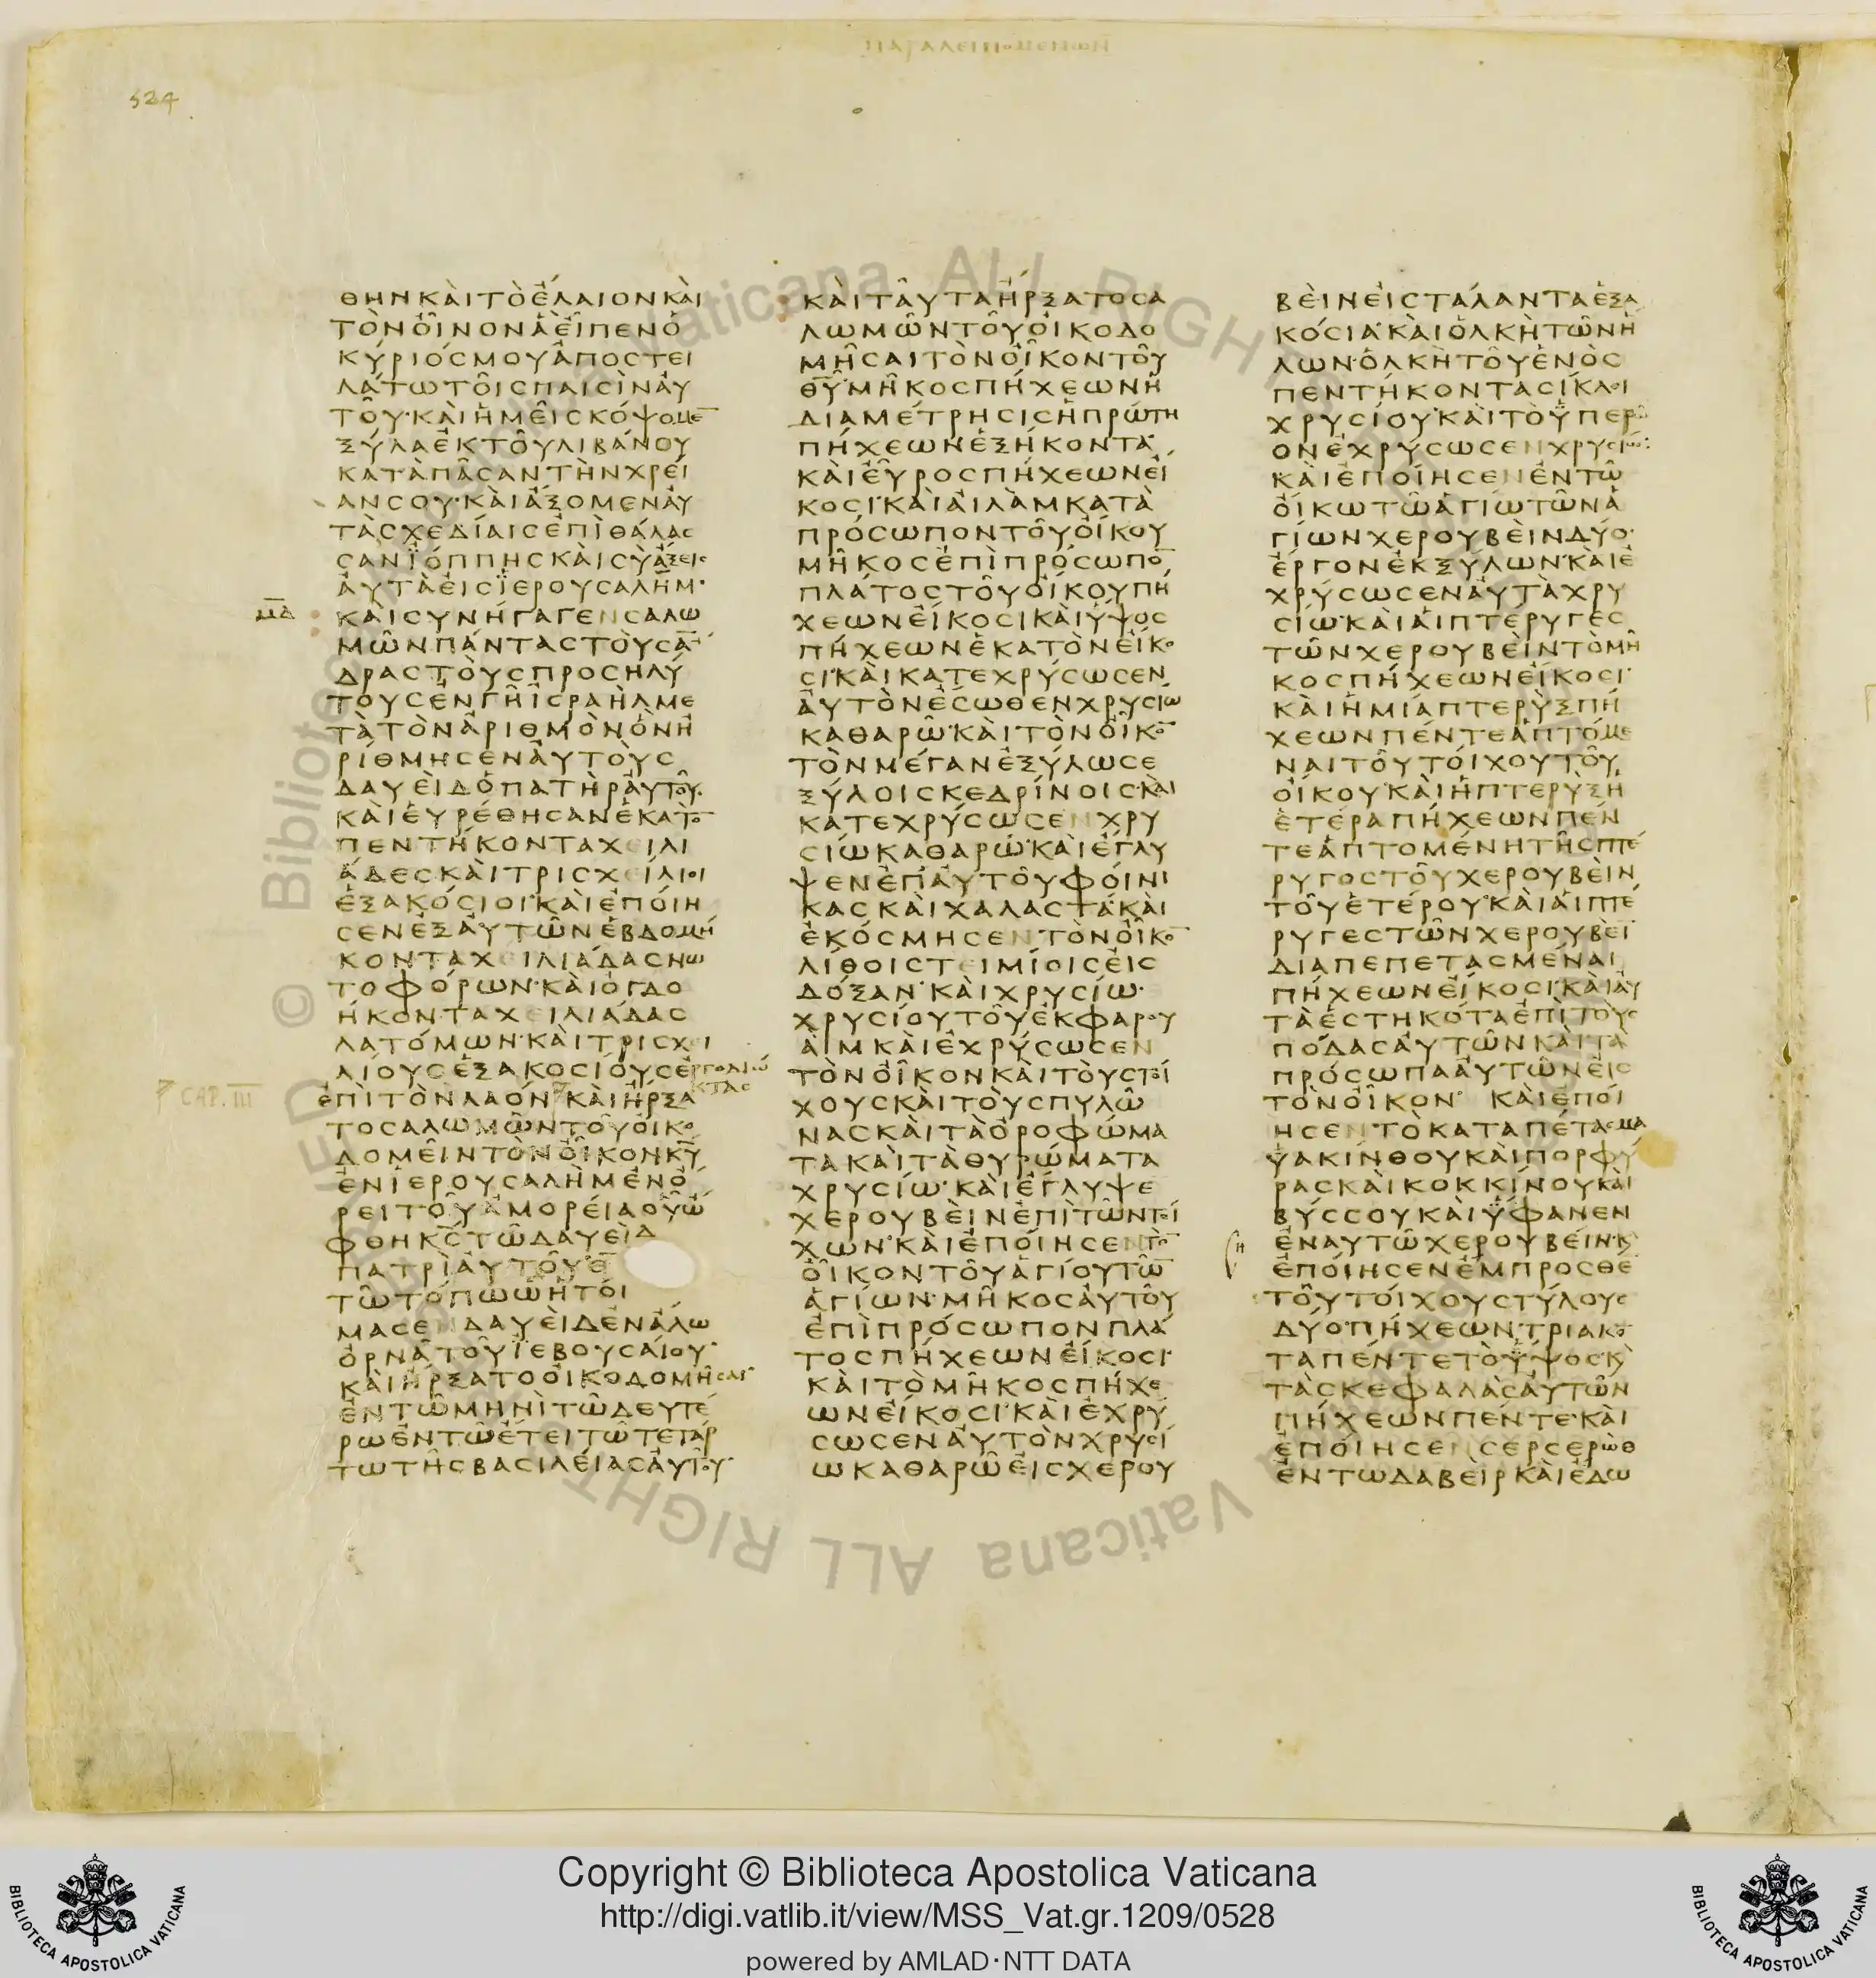 ΠΑΡΑΛΕΙΠΟΜΕΝΩΝ
524
ΘΗΝΚΑΙΤΟΕΛΑΙΟΝΚΑΙ
ΤΟΝΟΙΝΟΝΑΕΙΠΕΝΟ
ΚΥΡΙΟϹΜΟΥΑΠΟϹΤΕΙ
ΛΑΤΩΤΟΙϹΠΑΙϹΙΝΑΥ
ΤΟΥ·ΚΑΙΗΜΕΙϹΚΟΨΟΜΕ̅
ΞΥΛΑΕΚΤΟΥΛΙΒΑΝΟΥ
ΚΑΤΑΠΑϹΑΝΤΗΝΧΡΕΙ
ΑΝϹΟΥ·ΚΑΙΑΞΟΜΕΝΑΥ
ΤΑϹΧΕΔΙΑΙϹΕΠΙΘΑΛΑϹ
ϹΑΝΪΟΠΠΗϹΚΑΙϹΥΑΞΕΙϹ
ΑΥΤΑΕΙϹΪΕΡΟΥϹΑΛΗΜ·
Μ̅Δ̅
ΚΑΙϹΥΝΗΓΑΓΕΝϹΑΛΩ
ΜΩΝΠΑΝΤΑϹΤΟΥϹΑ̅
ΔΡΑϹΤΟΥϹΠΡΟϹΗΛΥ
ΤΟΥϹΕΝΓΗΙϹΡΑΗΛΜΕ
ΤΑΤΟΝΑΡΙΘΜΟΝΟΝΗ
ΡΙΘΜΗϹΕΝΑΥΤΟΥϹ
ΔΑΥΕΙΔΟΠΑΤΗΡΑΥΤΟΥ·
ΚΑΙΕΥΡΕΘΗϹΑΝΕΚΑΤΟ̅
ΠΕΝΤΗΚΟΝΤΑΧΕΙΛΙ
ΑΔΕϹΚΑΙΤΡΙϹΧΕΙΛΙΟΙ
ΕΞΑΚΟϹΙΟΙ·ΚΑΙΕΠΟΙΗ
ϹΕΝΕΞΑΥΤΩΝΕΒΔΟΜΗ
ΚΟΝΤΑΧΕΙΛΙΑΔΑϹΝΩ
ΤΟΦΟΡΩΝ·ΚΑΙΟΓΔΟ
ΗΚΟΝΤΑΧΕΙΛΙΑΔΑϹ
ΛΑΤΟΜΩΝ·ΚΑΙΤΡΙϹΧΕΙ
ΛΙΟΥϹΕΞΑΚΟϹΙΟΥϹΕΡΓΟΔΙΩ
ΚΤΑϹ
CAP. III
ΕΠΙΤΟΝΛΑΟΝ ΚΑΙΗΡΞΑ
ΤΟϹΑΛΩΜΩΝΤΟΥΟΙΚΟ
ΔΟΜΕΙΝΤΟΝΟΙΚΟΝΚ̅Υ̅
ΕΝΙΕΡΟΥϹΑΛΗΜΕΝΟ
ΡΕΙΤΟΥΑΜΟΡΕΙΑΟΥΩ
ΦΘΗΚ̅Ϲ̅ΤΩΔΑΥΕΙΔ
ΠΑΤΡΙΑΥΤΟΥΕ̅
ΤΩΤΟΠΩΩΗΤΟΙ
ΜΑϹΕΝΔΑΥΕΙΔΕΝΑΛΩ
ΟΡΝΑΤΟΥΪΕΒΟΥϹΑΙΟΥ·
ΚΑΙΗΡΞΑΤΟΟΙΚΟΔΟΜΗϹΑΙ
ΕΝΤΩΜΗΝΙΤΩΔΕΥΤΕ
ΡΩΕΝΤΩΕΤΕΙΤΩΤΕΤΑΡ
ΤΩΤΗϹΒΑϹΙΛΕΙΑϹΑΥΤΟΥ·
ΚΑΙΤΑΥΤΑΗΡΞΑΤΟϹΑ
ΛΩΜΩΝΤΟΥΟΙΚΟΔΟ
ΜΗϹΑΙΤΟΝΟΙΚΟΝΤΟΥ
Θ̅Υ̅·ΜΗΚΟϹΠΗΧΕΩΝΗ
ΔΙΑΜΕΤΡΗϹΙϹΗΠΡΩΤΗ
ΠΗΧΕΩΝΕΞΗΚΟΝΤΑ·
ΚΑΙΕΥΡΟϹΠΗΧΕΩΝΕΙ
ΚΟϹΙ·ΚΑΙΑΙΛΑΜΚΑΤΑ
ΠΡΟϹΩΠΟΝΤΟΥΟΙΚΟΥ
ΜΗΚΟϹΕΠΙΠΡΟϹΩΠΟ̅
ΠΛΑΤΟϹΤΟΥΟΙΚΟΥΠΗ
ΧΕΩΝΕΙΚΟϹΙΚΑΙΥΨΟϹ
ΠΗΧΕΩΝΕΚΑΤΟΝΕΙΚΟ
ϹΙ·ΚΑΙΚΑΤΕΧΡΥϹΩϹΕΝ
ΑΥΤΟΝΕϹΩΘΕΝΧΡΥϹΙΩ
ΚΑΘΑΡΩ·ΚΑΙΤΟΝΟΙΚΟ̅
ΤΟΝΜΕΓΑΝΕΞΥΛΩϹΕ
ΞΥΛΟΙϹΚΕΔΡΙΝΟΙϹ·ΚΑΙ
ΚΑΤΕΧΡΥϹΩϹΕΝΧΡΥ
ϹΙΩΚΑΘΑΡΩ·ΚΑΙΕΓΛΥ
ΨΕΝΕΠΑΥΤΟΥΦΟΙΝΙ
ΚΑϹΚΑΙΧΑΛΑϹΤΑΚΑΙ
ΕΚΟϹΜΗϹΕΝΤΟΝΟΙΚΟ̅
ΛΙΘΟΙϹΤΕΙΜΙΟΙϹΕΙϹ
ΔΟΞΑΝ·ΚΑΙΧΡΥϹΙΩ·
ΧΡΥϹΙΟΥΤΟΥΕΚΦΑΡΟΥ
ΑΙΜΚΑΙΕΧΡΥϹΩϹΕΝ
ΤΟΝΟΙΚΟΝΚΑΙΤΟΥϹΤΟΙ
ΧΟΥϹΚΑΙΤΟΥϹΠΥΛΩ
ΝΑϹΚΑΙΤΑΟΡΟΦΩΜΑ
ΤΑΚΑΙΤΑΘΥΡΩΜΑΤΑ
ΧΡΥϹΙΩ·ΚΑΙΕΓΛΥΨΕ
ΧΕΡΟΥΒΕΙΝΕΠΙΤΩΝΤΟΙ
ΧΩΝ·ΚΑΙΕΠΟΙΗϹΕΝΤΟ̅
ΟΙΚΟΝΤΟΥΑΓΙΟΥΤΩ̅
ΑΓΙΩΝ·ΜΗΚΟϹΑΥΤΟΥ
ΕΠΙΠΡΟϹΩΠΟΝΠΛΑ
ΤΟϹΠΗΧΕΩΝΕΙΚΟϹΙ·
ΚΑΙΤΟΜΗΚΟϹΠΗΧΕ
ΩΝΕΙΚΟϹΙ·ΚΑΙΕΧΡΥ
ϹΩϹΕΝΑΥΤΟΝΧΡΥϹΙ
ΩΚΑΘΑΡΩΕΙϹΧΕΡΟΥ
ΒΕΙΝΕΙϹΤΑΛΑΝΤΑΕΞΑ
ΚΟϹΙΑ·ΚΑΙΟΛΚΗΤΩΝΗ
ΛΩΝ·ΟΛΚΗΤΟΥΕΝΟϹ
ΠΕΝΤΗΚΟΝΤΑϹΙΚΛΟΙ
ΧΡΥϹΙΟΥ·ΚΑΙΤΟΫΠΕΡΩ
ΟΝΕΧΡΥϹΩϹΕΝΧΡΥϹΙΩ:
ΚΑΙΕΠΟΙΗϹΕΝΕΝΤΩ
ΟΙΚΩΤΩΑΓΙΩΤΩΝΑ
ΓΙΩΝΧΕΡΟΥΒΕΙΝΔΥΟ·
ΕΡΓΟΝΕΚΞΥΛΩΝ·ΚΑΙΕ
ΧΡΥϹΩϹΕΝΑΥΤΑΧΡΥ
ϹΙΩ·ΚΑΙΑΙΠΤΕΡΥΓΕϹ
ΤΩΝΧΕΡΟΥΒΕΙΝΤΟΜΗ
ΚΟϹΠΗΧΕΩΝΕΙΚΟϹΙ·
ΚΑΙΗΜΙΑΠΤΕΡΥΞΠΗ
ΧΕΩΝΠΕΝΤΕΑΠΤΟΜΕ
ΝΑΙΤΟΥΤΟΙΧΟΥΤΟΥ
ΟΙΚΟΥ·ΚΑΙΗΠΤΕΡΥΞΗ
ΕΤΕΡΑΠΗΧΕΩΝΠΕΝ
ΤΕΑΠΤΟΜΕΝΗΤΗϹΠΤΕ
ΡΥΓΟϹΤΟΥΧΕΡΟΥΒΕΙΝ
ΤΟΥΕΤΕΡΟΥ·ΚΑΙΑΙΠΤΕ
ΡΥΓΕϹΤΩΝΧΕΡΟΥΒΕΙ̅
ΔΙΑΠΕΠΕΤΑϹΜΕΝΑΙ
ΠΗΧΕΩΝΕΙΚΟϹΙ·ΚΑΙΑΥ
ΤΑΕϹΤΗΚΟΤΑΕΠΙΤΟΥϹ
ΠΟΔΑϹΑΥΤΩΝΚΑΙΤΑ
ΠΡΟϹΩΠΑΑΥΤΩΝΕΙϹ
ΤΟΝΟΙΚΟΝ· ΚΑΙΕΠΟΙ
ΗϹΕΝΤΟΚΑΤΑΠΕΤΑϹΜΑ
ΫΑΚΙΝΘΟΥΚΑΙΠΟΡΦΥ
ΡΑϹΚΑΙΚΟΚΚΙΝΟΥΚΑΙ
ΒΥϹϹΟΥΚΑΙΫΦΑΝΕΝ
Η
ΕΝΑΥΤΩΧΕΡΟΥΒΕΙΝ·Κ
ΕΠΟΙΗϹΕΝΕΜΠΡΟϹΘΕ̅
ΤΟΥΤΟΙΧΟΥϹΤΥΛΟΥϹ
ΔΥΟ·ΠΗΧΕΩΝΤΡΙΑΚΟ̅
ΤΑΠΕΝΤΕΤΟΫΨΟϹ·Κ
ΤΑϹΚΕΦΑΛΑϹΑΥΤΩΝ
ΠΗΧΕΩΝΠΕΝΤΕ·ΚΑΙ
ΕΠΟΙΗϹΕΝϹΕΡϹΕΡΩΘ
ΕΝΤΩΔΑΒΕΙΡΚΑΙΕΔΩ
Copyright © Biblioteca Apostolica Vaticana
http://digi.vatlib.it/view/MSS_Vat.gr.1209/0528
powered by AMLAD·NTT DATA
BIBLIOTECA APOSTOLICA VATICANA
BIBLIOTECA APOSTOLICA VATICANA